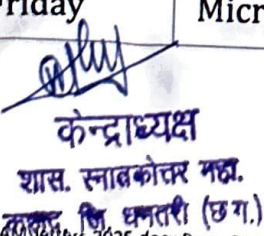 riday Micr
केन्द्राध्यक्ष
शास. स्नातकोत्तर महा.
जि धमतरी (छ ग.)
2025